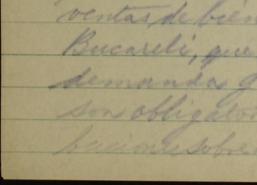 ventas de bien
Bucareli, que
demanda g
son obligato
buciones sobre